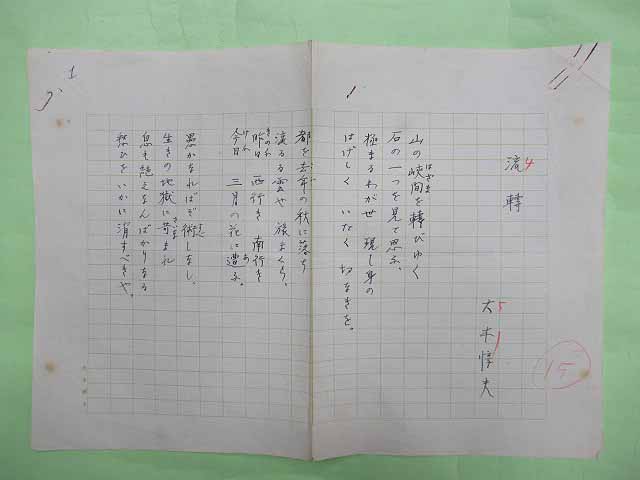 流轉
大木惇夫
山の峽間を轉びゆく
石の一つを見て思ふ、
極まるわが世 現し身の
はげしく いたく 切なきを。
都を去年の秋に落ち
流るる雲や 旅まくら、
昨日 西行き 南行き
今日 三月の花に遭ふ。
愚かなればぞ 術もなし、
生きの地獄に苛まれ
息も絶えなんばかりなる
愁ひを いかに消すべきや。
15